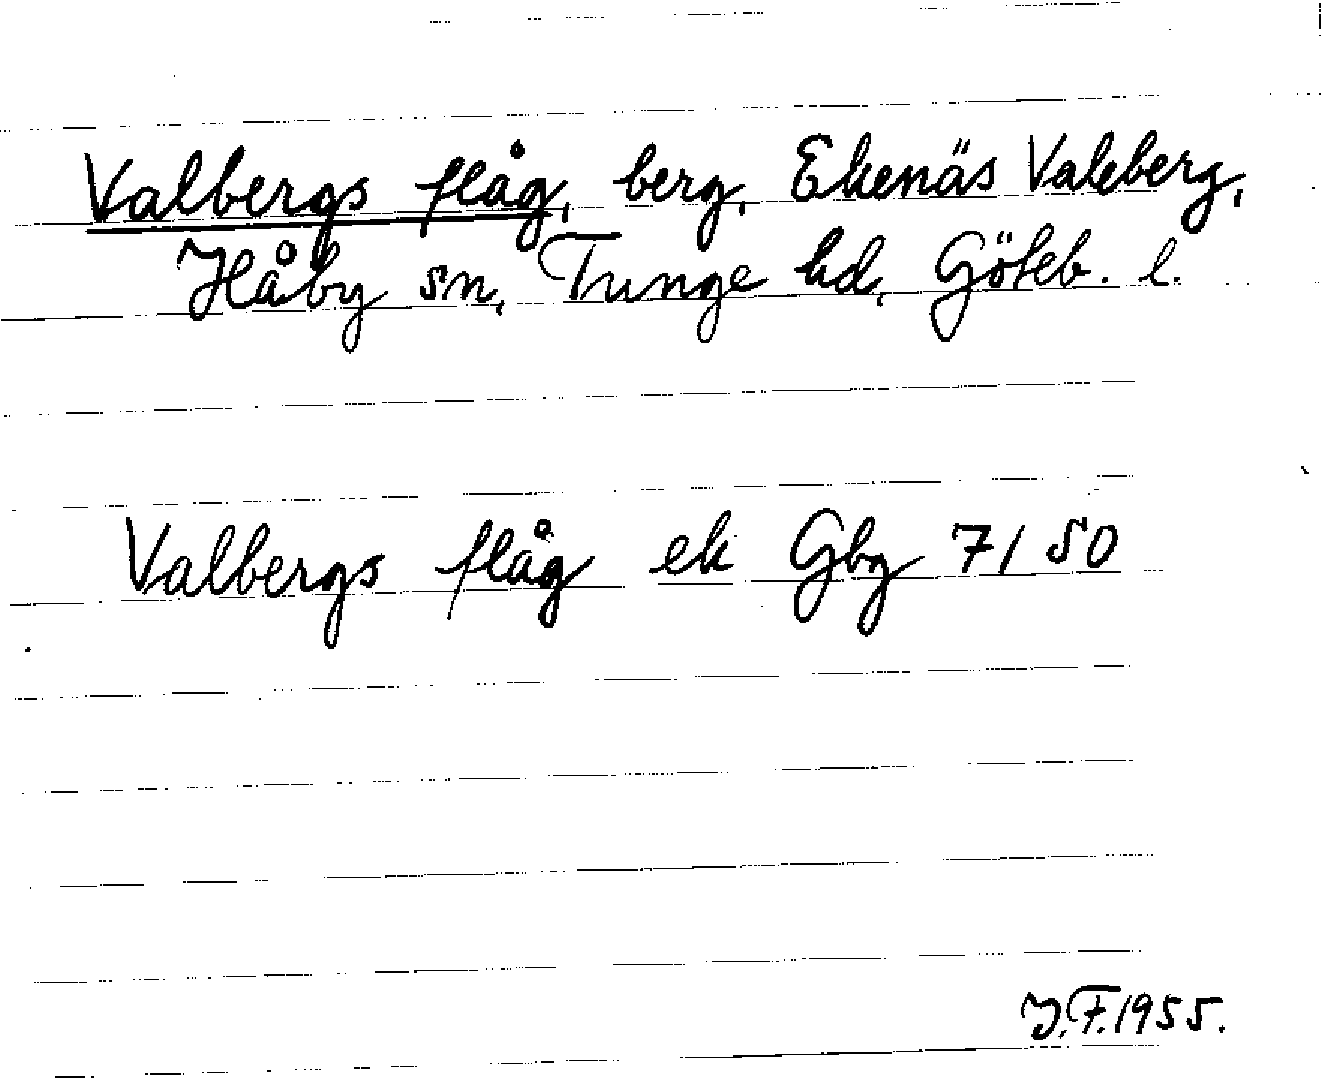 Valbergs flåg, berg, Ekenäs Valeberg,
Håby sn, Tunge hd, Göteb. l.
Valbergs flåg ek Gbg 7/50
J.F. 1955.